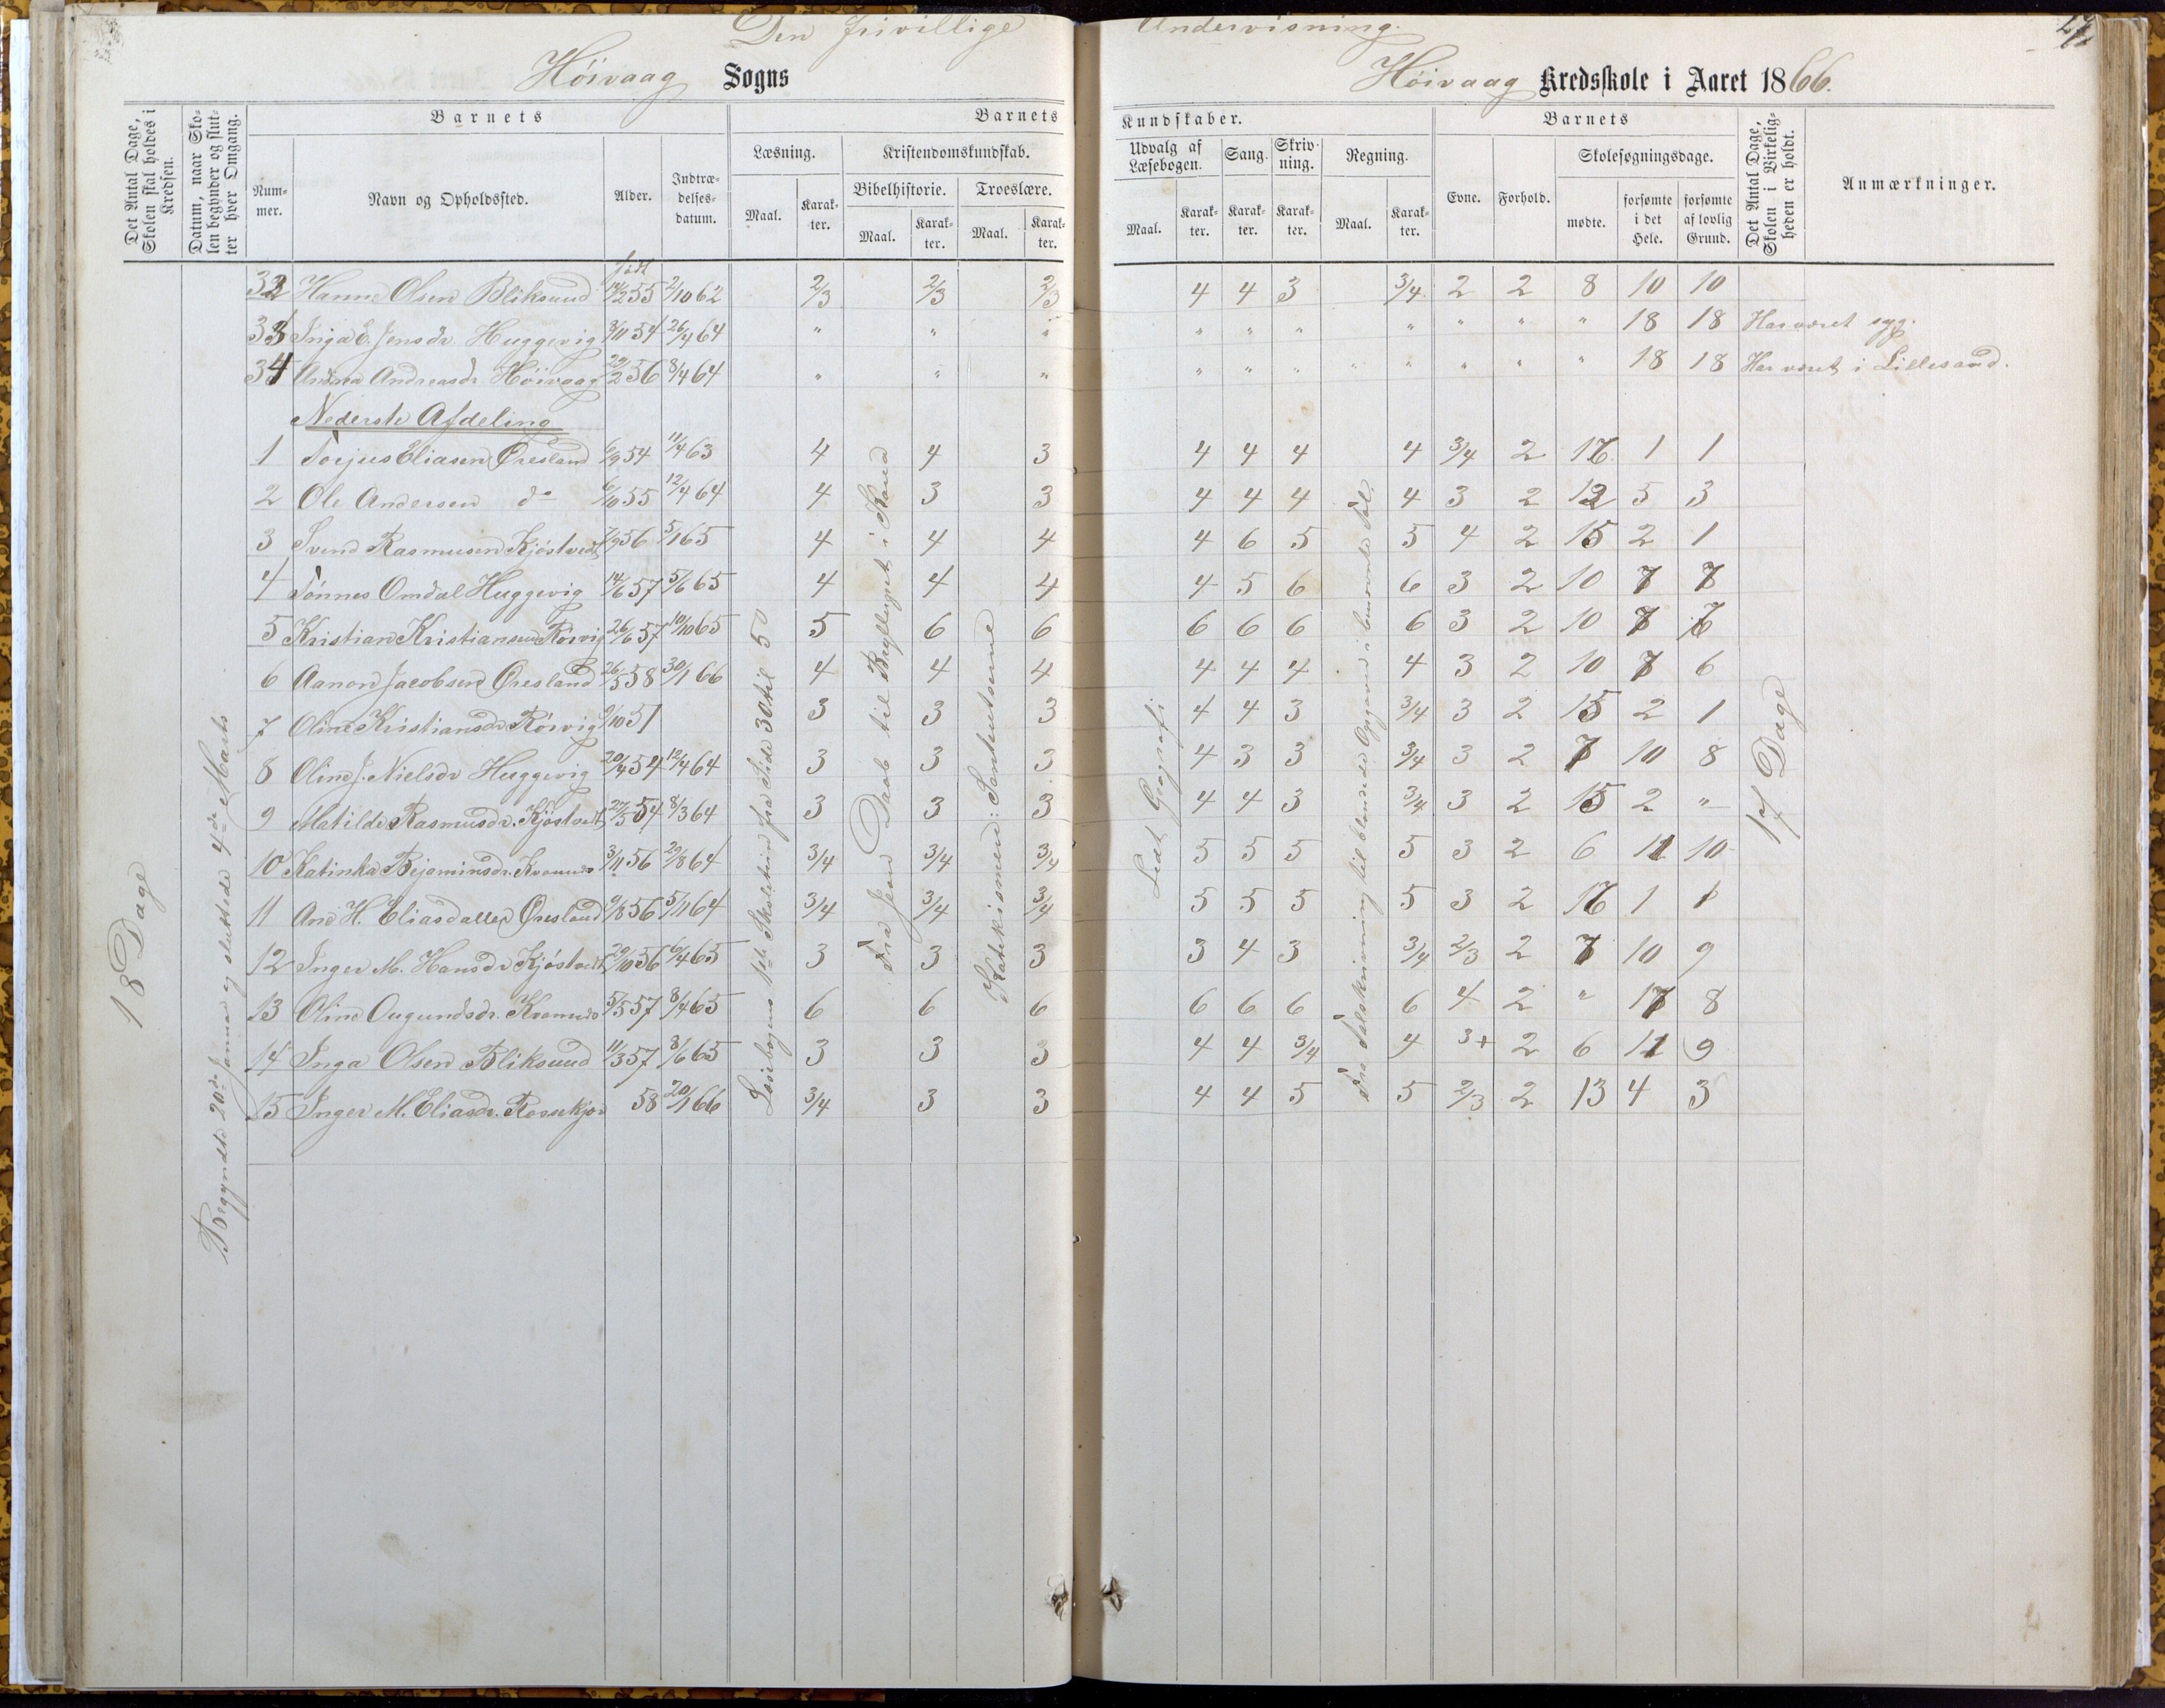 Den frivillige Undervisning.
Höivaag Sogns
Höivaag Kredsskole i Aaret 1866.
Det Antal Dage, Skolen skal holdes i Kredsen.
Datum, naar Skolen begynder og slutter hver Omgang.
Barnets
Nummer.
Navn og Opholdssted.
Alder.
Indtrædelsesdatum.
Barnets Kundskaber.
Læsning.
Maal.
Karakter.
Kristendomskundskab.
Bibelhistorie.
Maal.
Karakter.
Troeslære.
Maal.
Karakter.
Udvalg af Læsebogen.
Maal.
Karakter.
Sang.
Karakter.
Skrivning.
Karakter.
Regning.
Maal.
Karakter.
Barnets
Evne.
Forhold.
Skolesøgningsdage.
mødte.
forsømte i det Hele.
forsømte af lovlig Grund.
Det Antal Dage, Skolen i Virkeligheden er holdt.
Anmærkninger.
født
32 Hanne Olsen Bliksund 14/2 55 2/10 62 2/3 2/3 2/3 4 4 3 3/4 2 2 8 10 10
33 Inga E. Jensdr. Huggevig 3/11 54 26/4 64 " " " " " " " " " " 18 18 Har været syg.
34 Andrea Andreasdr. Höivaag 29/2 56 8/4 64 " " " " " " " " " " " 18 18 Har været i Lillesand.
Nederste Afdeling
1 Torjus Eliasen Øresland 6/9 54 11/4 63 4 4 3 4 4 4 4 3/4 2 16 1 1
2 Ole Andersen do 6/10 55 12/4 64 4 3 3 4 4 4 4 3 2 12 5 3
3 Svend Rasmusen Kjöstvedt 7/9 56 5/1 65 4 4 4 4 6 5 5 4 2 15 2 1
4 Tönnes Omdal Huggevig 14/6 57 5/6 65 4 4 4 4 5 6 6 3 2 10 7 7
5 Kristian Kristiansen Rörvig 26/6 57 10/10 65 5 6 6 6 6 6 6 3 2 10 7 7
6 Aanon Jacobsen Øresland 26/5 58 30/1 66 4 4 4 4 4 4 4 3 2 10 7 6
7 Oline Kristiansdr. Rörvig 9/10 51 3 3 3 4 4 3 3/4 3 2 15 2 1
8 Oline J. Nielsdr. Huggevig 20/4 54 12/4 64 3 3 3 4 3 3 3/4 3 2 7 10 8
9 Matilde Rasmusdr. Kjöstvedt 27/5 54 8/3 64 3 3 3 4 4 3 3/4 3 2 15 2 "
10 Katinka Bejaminsdr. 3/11 56 29/8 64 3/4 3/4 3/4 5 5 5 5 3 2 6 11 10
11 Ane H. Eliasdatter Øresland 9/8 56 5/11 64 3/4 3/4 3/4 5 5 5 5 3 2 16 1 1
12 Inger M. Hansdr. Kjöstvedt 20/10 56 6/4 65 3 3 3 3 4 3 3/4 2/3 2 7 10 9
13 Oline Ougundsdr. 5/5 57 8/4 65 6 6 6 6 6 6 6 4 2 " 17 8
14 Inga Olsen Bliksund 11/3 57 8/6 65 3 3 3 4 4 3/4 4 3+ 2 6 11 9
15 Inger M. Eliasdr. 58 20/1 66 3/4 3 3 4 4 5 5 2/3 2 13 4 3
18 Dage
Begyndte 20de og sluttede 4de Marts
Læsebogens 1ste Skoletrin fra Side 30 til 50
Fra Jesu Daab til Brylluppet i Kana
Katekismen:
Lidt Geografi
Fra Talskrivning til blandede Opgaver i benævnte Tal.
17 Dage